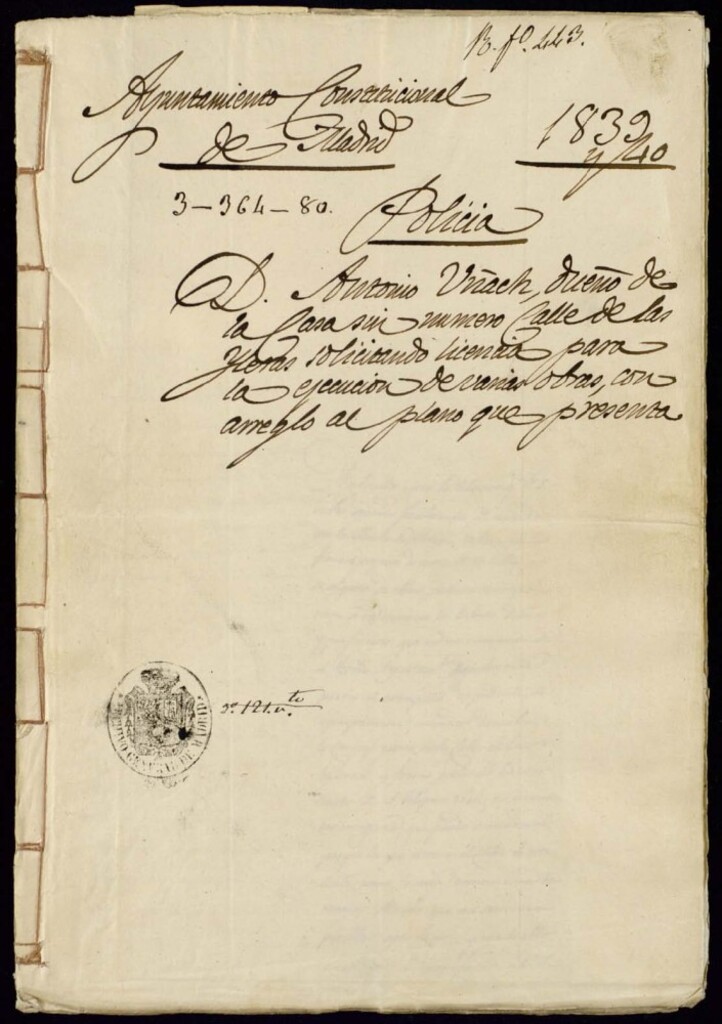 R. fº. 443.
Ayuntamiento Constitucional
de Madrid
1839
y 40
3-364-80.
Policia
D. Antonio Viñach, dueño de
la Casa sin numero Calle de las
Yeras solicitando licencia para
la ejecucion de varias obras, con
arreglo al plano que presenta
ARCHIVO GENERAL DE MADRID